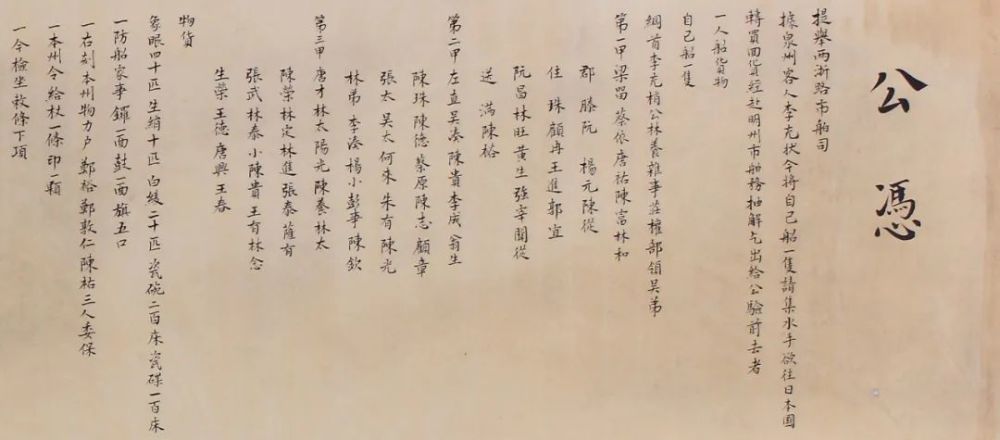 公憑
提舉兩浙路市舶司
據泉州客人李充狀今將自己船一隻請集水手欲往日本国
轉買回貨經赴明州市舶務抽解乞出給公驗前去者
一人船貨物
自己船一隻
綱首李充梢公林養雜事莊權部領吴弟
第一甲梁留蔡依唐祐陳富林和
郡滕阮楊元陳從
住珠顧冉王進郭宜
阮昌林旺黄生强宰関從
送滿陳裕
第二甲左直吴湊陳貴李成翁生
陳珠陳德蔡原陳志顧章
張太吴太何來朱有陳光
林弟李湊楊小彭事陳欽
第三甲唐才林太陽光陳養林太
陳榮林定林進張泰薩有
張武林泰小陳貴王有林念
生榮王德唐興王春
物貨
象眼四十匹生絹十匹白綾二十匹瓷碗二百床瓷碟一百床
一防船家事鑼一面鼓一面旗五口
一右刻本州物力户鄭裕鄭敦仁陳祐三人委保
一本州令給杖一條印一顆
一今檢坐敕條下項